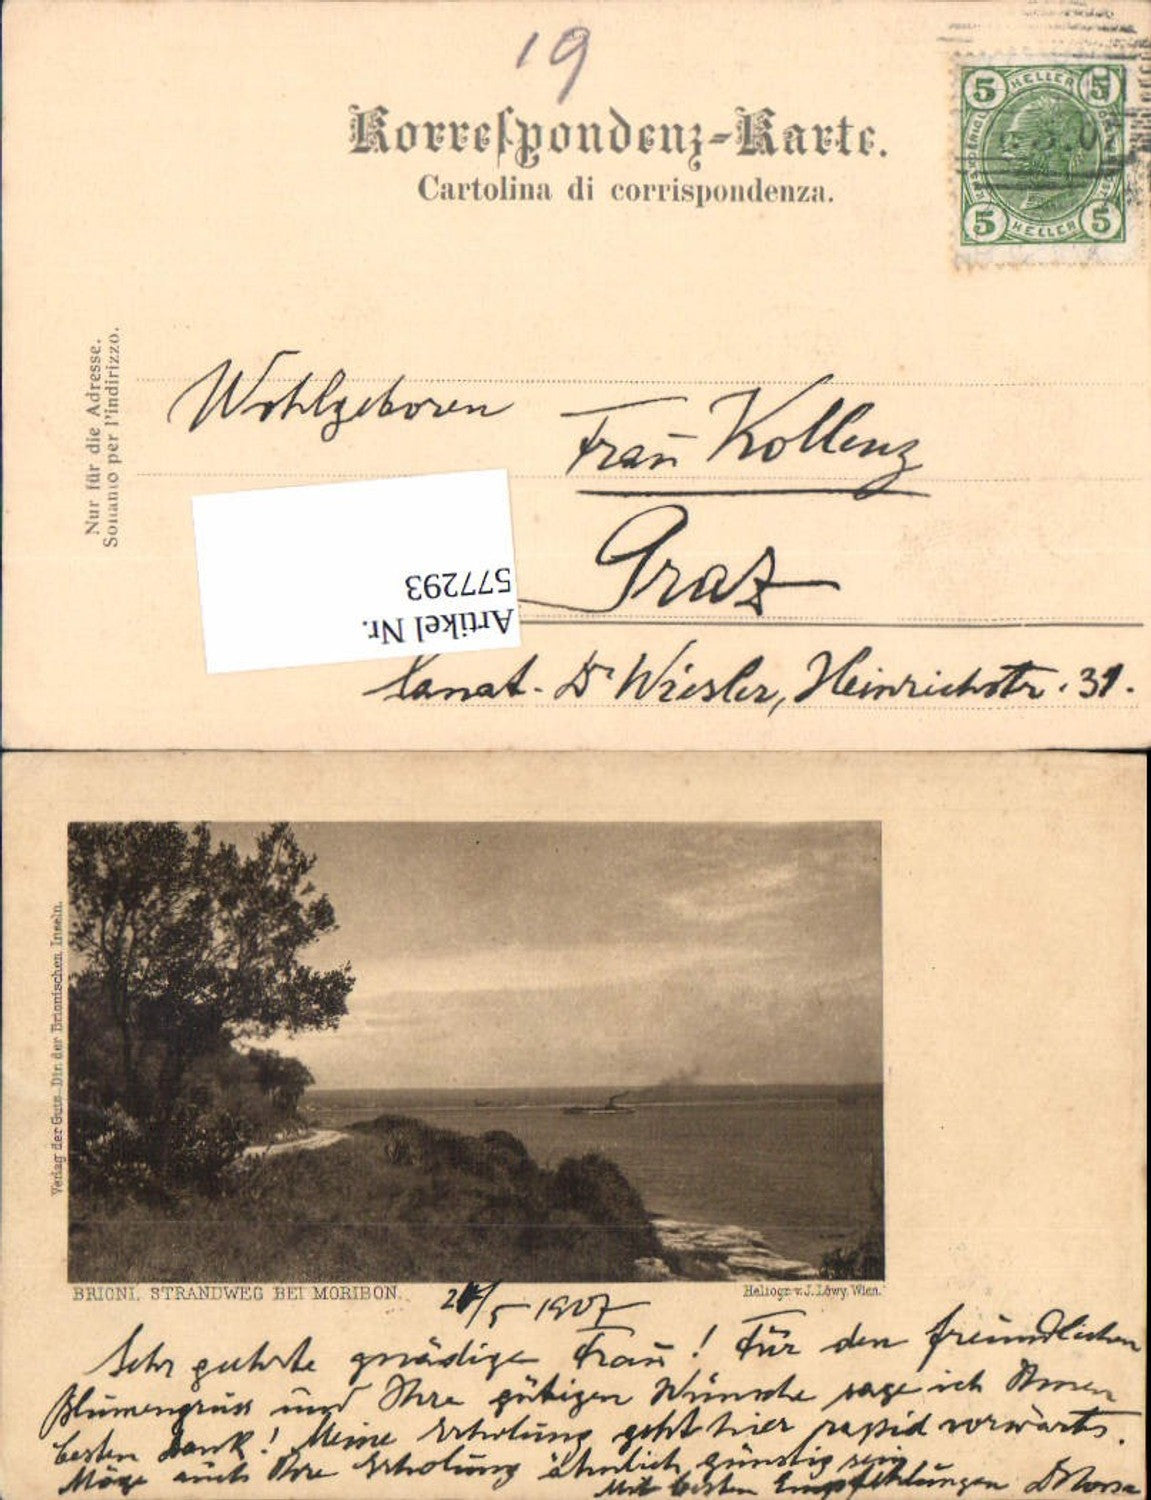 19
Korrespondenz-Karte.
Cartolina di corrispondenza.
5 HELLER 5
5 HELLER 5
Nur für die Adresse.
Soltanto per l'indirizzo.
Wohlgeboren
Frau Kollenz
Graz
Artikel Nr.
577293
Sanat. Dr Wiesler, Heinrichstr. 31.
Verlag der Guts-Dir. der Brionischen Inseln.
BRIONI. STRANDWEG BEI MORIBON.
Heliogr. v. J. Löwy, Wien.
/5 1907
Sehr geehrte gnädige Frau! Für den freundlichen
Blumengruss und Ihre gütigen Wünsche sage ich Ihnen
besten Dank! Meine Erholung geht hier rapid vorwärts.
Möge auch Ihre Erholung ähnlich günstig sein
Mit besten Empfehlungen